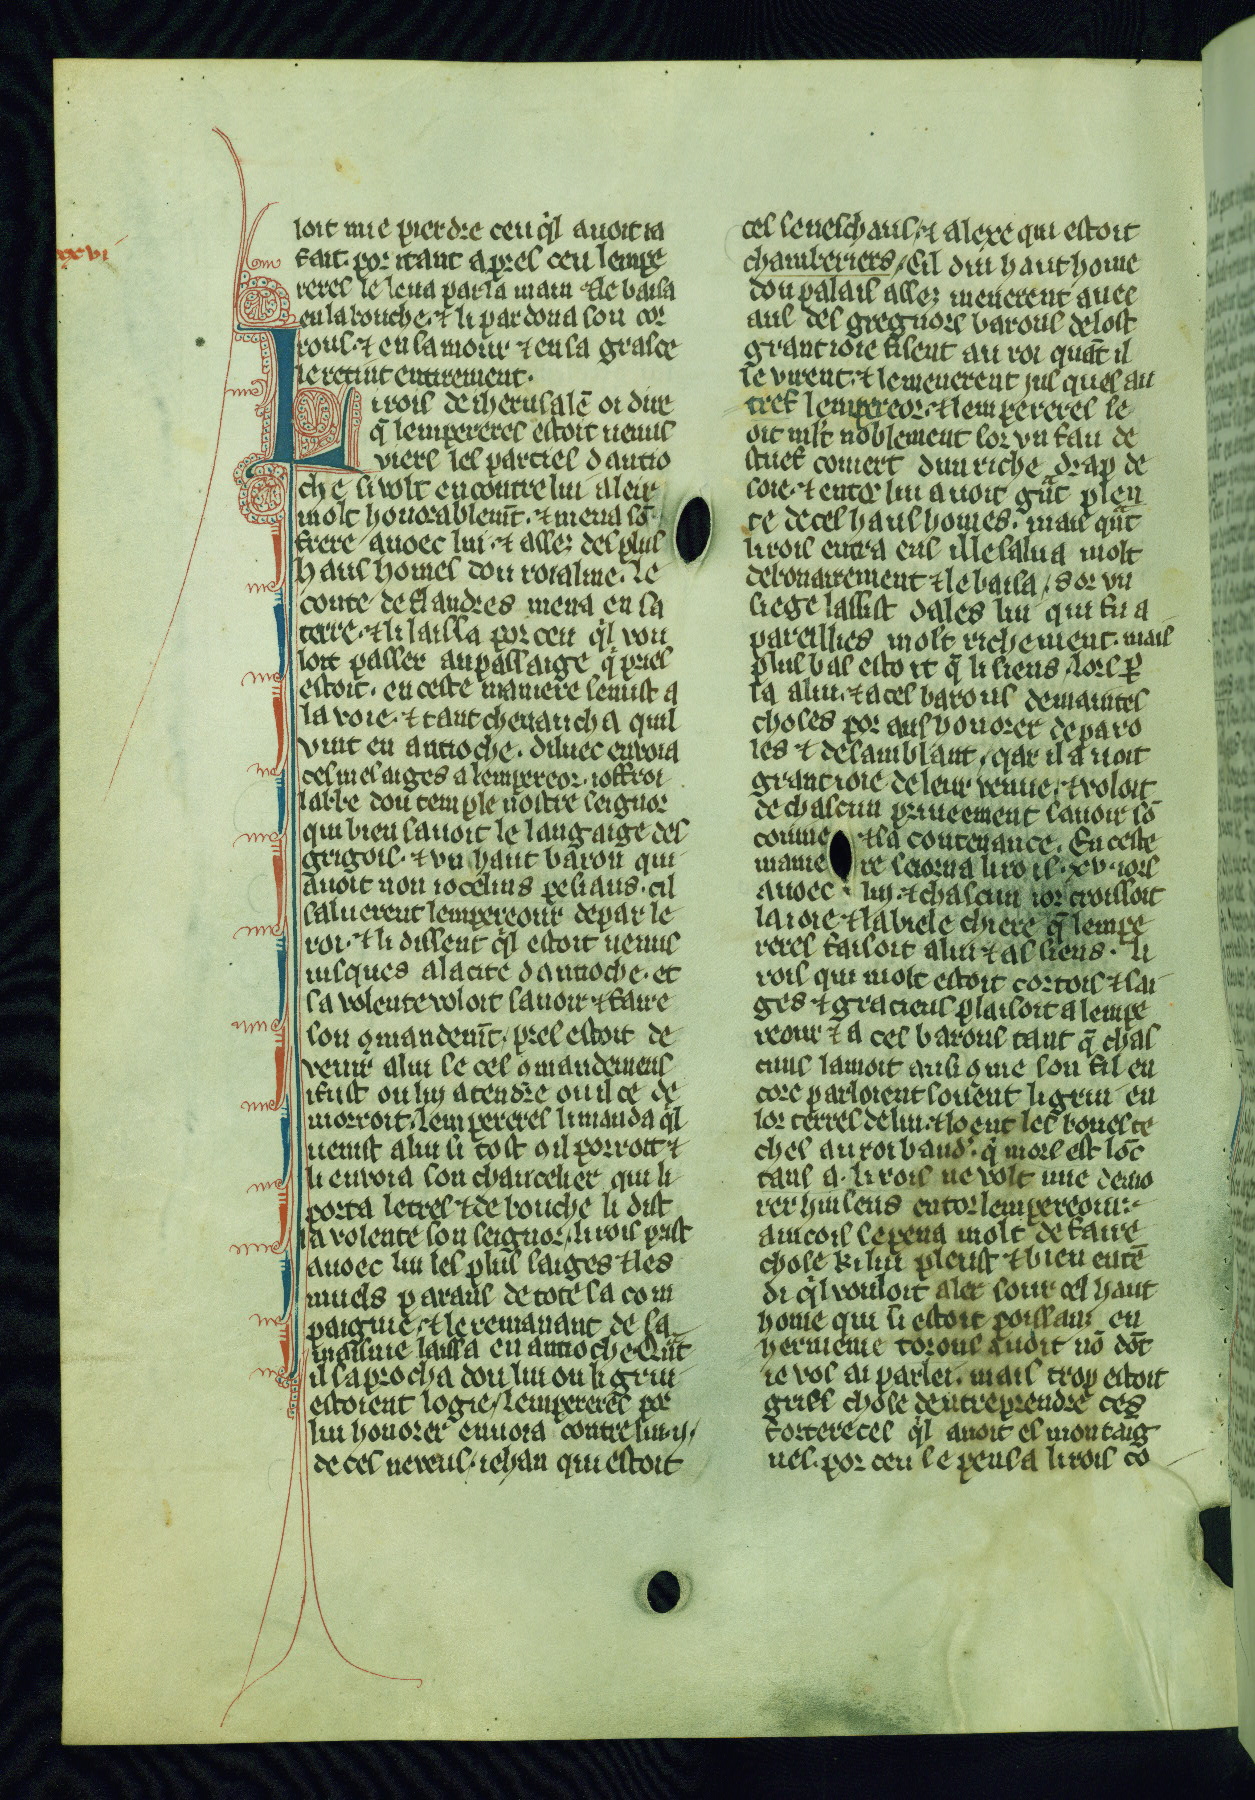 xxvi
loit mie pierdre ceu q̇l auoit ia
fait. por itant apres ceu lempe
reres le leua par la main ⁊ le baisa
en la bouche. ⁊ li pardona son cor
rous. ⁊ en samour ⁊ en sa grasce
le retint entirement.
Li rois de iherusalē oi dire
q̄ lempereres estoit uenus
viers les parties dantio
che si volt encontre lui aleir
molt honorablemt̄. ⁊ mena sō
frere auoec lui. ⁊ assez des plus
haus homes dou roialme. Le
conte de flandres mena en sa
terre. ⁊ li laissa por ceu q̇l vou
loit passer au passaige q̇ pries
estoit. en ceste maniere se mist a
la voie. ⁊ tant cheuaucha quil
vint en antioche. diluec enuoia
ces mesaiges a lempereor. ioffroi
labbe dou temple nostre seignor
qui bien sauoit le langaige des
grigois. ⁊ vn haut baron qui
auoit non iocelins pesiaus. cil
saluerent lempereour de par le
roi. ⁊ li dissent q̇l estoit uenus
iusques a la cite dantioche. et
sa volente voloit sauoir ⁊ faire
son ꝯmandemt̄. pres estoit de
venir a lui se ces ꝯmandemens
i fust ou lui atendre ou il ce de
morroit. Lempereres li manda q̇l
uenist a lui si tost ꝯ il porroit ⁊
li enuoia son chancelier qui li
porta letres ⁊ de bouche li dist
la volente son seignor. li rois prist
auoec lui les plus saiges ⁊ les
muels paraus de tote sa com
paignie. ⁊ le remanant de sa
maisnie laissa en antioche. Qn̄t
il saprocha dou liu ou li griu
estoient logie / lempereres por
lui honorer enuoia contre lui .ij.
de ces neueus. iehan qui estoit
ces seneschaus. ⁊ alexe qui estoit
chamberiers / Cil dui haut home
dou palais assez menerent auec
aus des gregnors barons de lost
grant ioie fisent au roi quāt il
le virent. ⁊ le menerent jus ques au
tref lempereor. ⁊ lempereres se
oit ml't noblement sor vn fau de
stuef couuert dun riche drap de
soie. ⁊ entor lui auoit grāt plen
te de ces haus homes. mais qn̄t
li rois entra ens il le salua molt
debonairement ⁊ le baisa / sor vn
siege lassist dales lui qui fu a
pareillies molt richement. mais
plus bas estoit q̄ li siens. Lors p̄
la a lui. ⁊ a ces barons de maintes
choses por aus honorer de paro
les ⁊ de samblant / qar il auoit
grant ioie de leur venue. ⁊ voloit
de chascun priueement sauoir sō
conuine ⁊ la contenance. En ceste
maniere seiorna li rois .xv. iors
auoec lui. ⁊ chascun ior croissoit
la ioie ⁊ la biele chiere q̄ lempe
reres faisoit a lui ⁊ as siens. li
rois qui molt estoit cortois ⁊ sai
ges ⁊ gracieus plaisoit a lempe
reour ⁊ a ces barons tant q̄ chas
cuns lamoit ausi ꝯme son fil en
core parloient souent li griu en
lor terres de lui. ⁊ loent les bones te
ches au roi baud'. q̇ mors est lōc
tans a. li rois ne volt mie demo
rer huiseus entor lempereour.
aincois se pena molt de faire
chose ki lui pleust ⁊ bien entē
di q̇l vouloit aler sour cel haut
home qui si estoit poissans en
hermenie torous auoit nō dōt
ie vos ai parlei. mais trop estoit
gries chose dentreprendre ces
forteresces q̇l auoit es montaig
nes. por ceu se pensa li rois cō